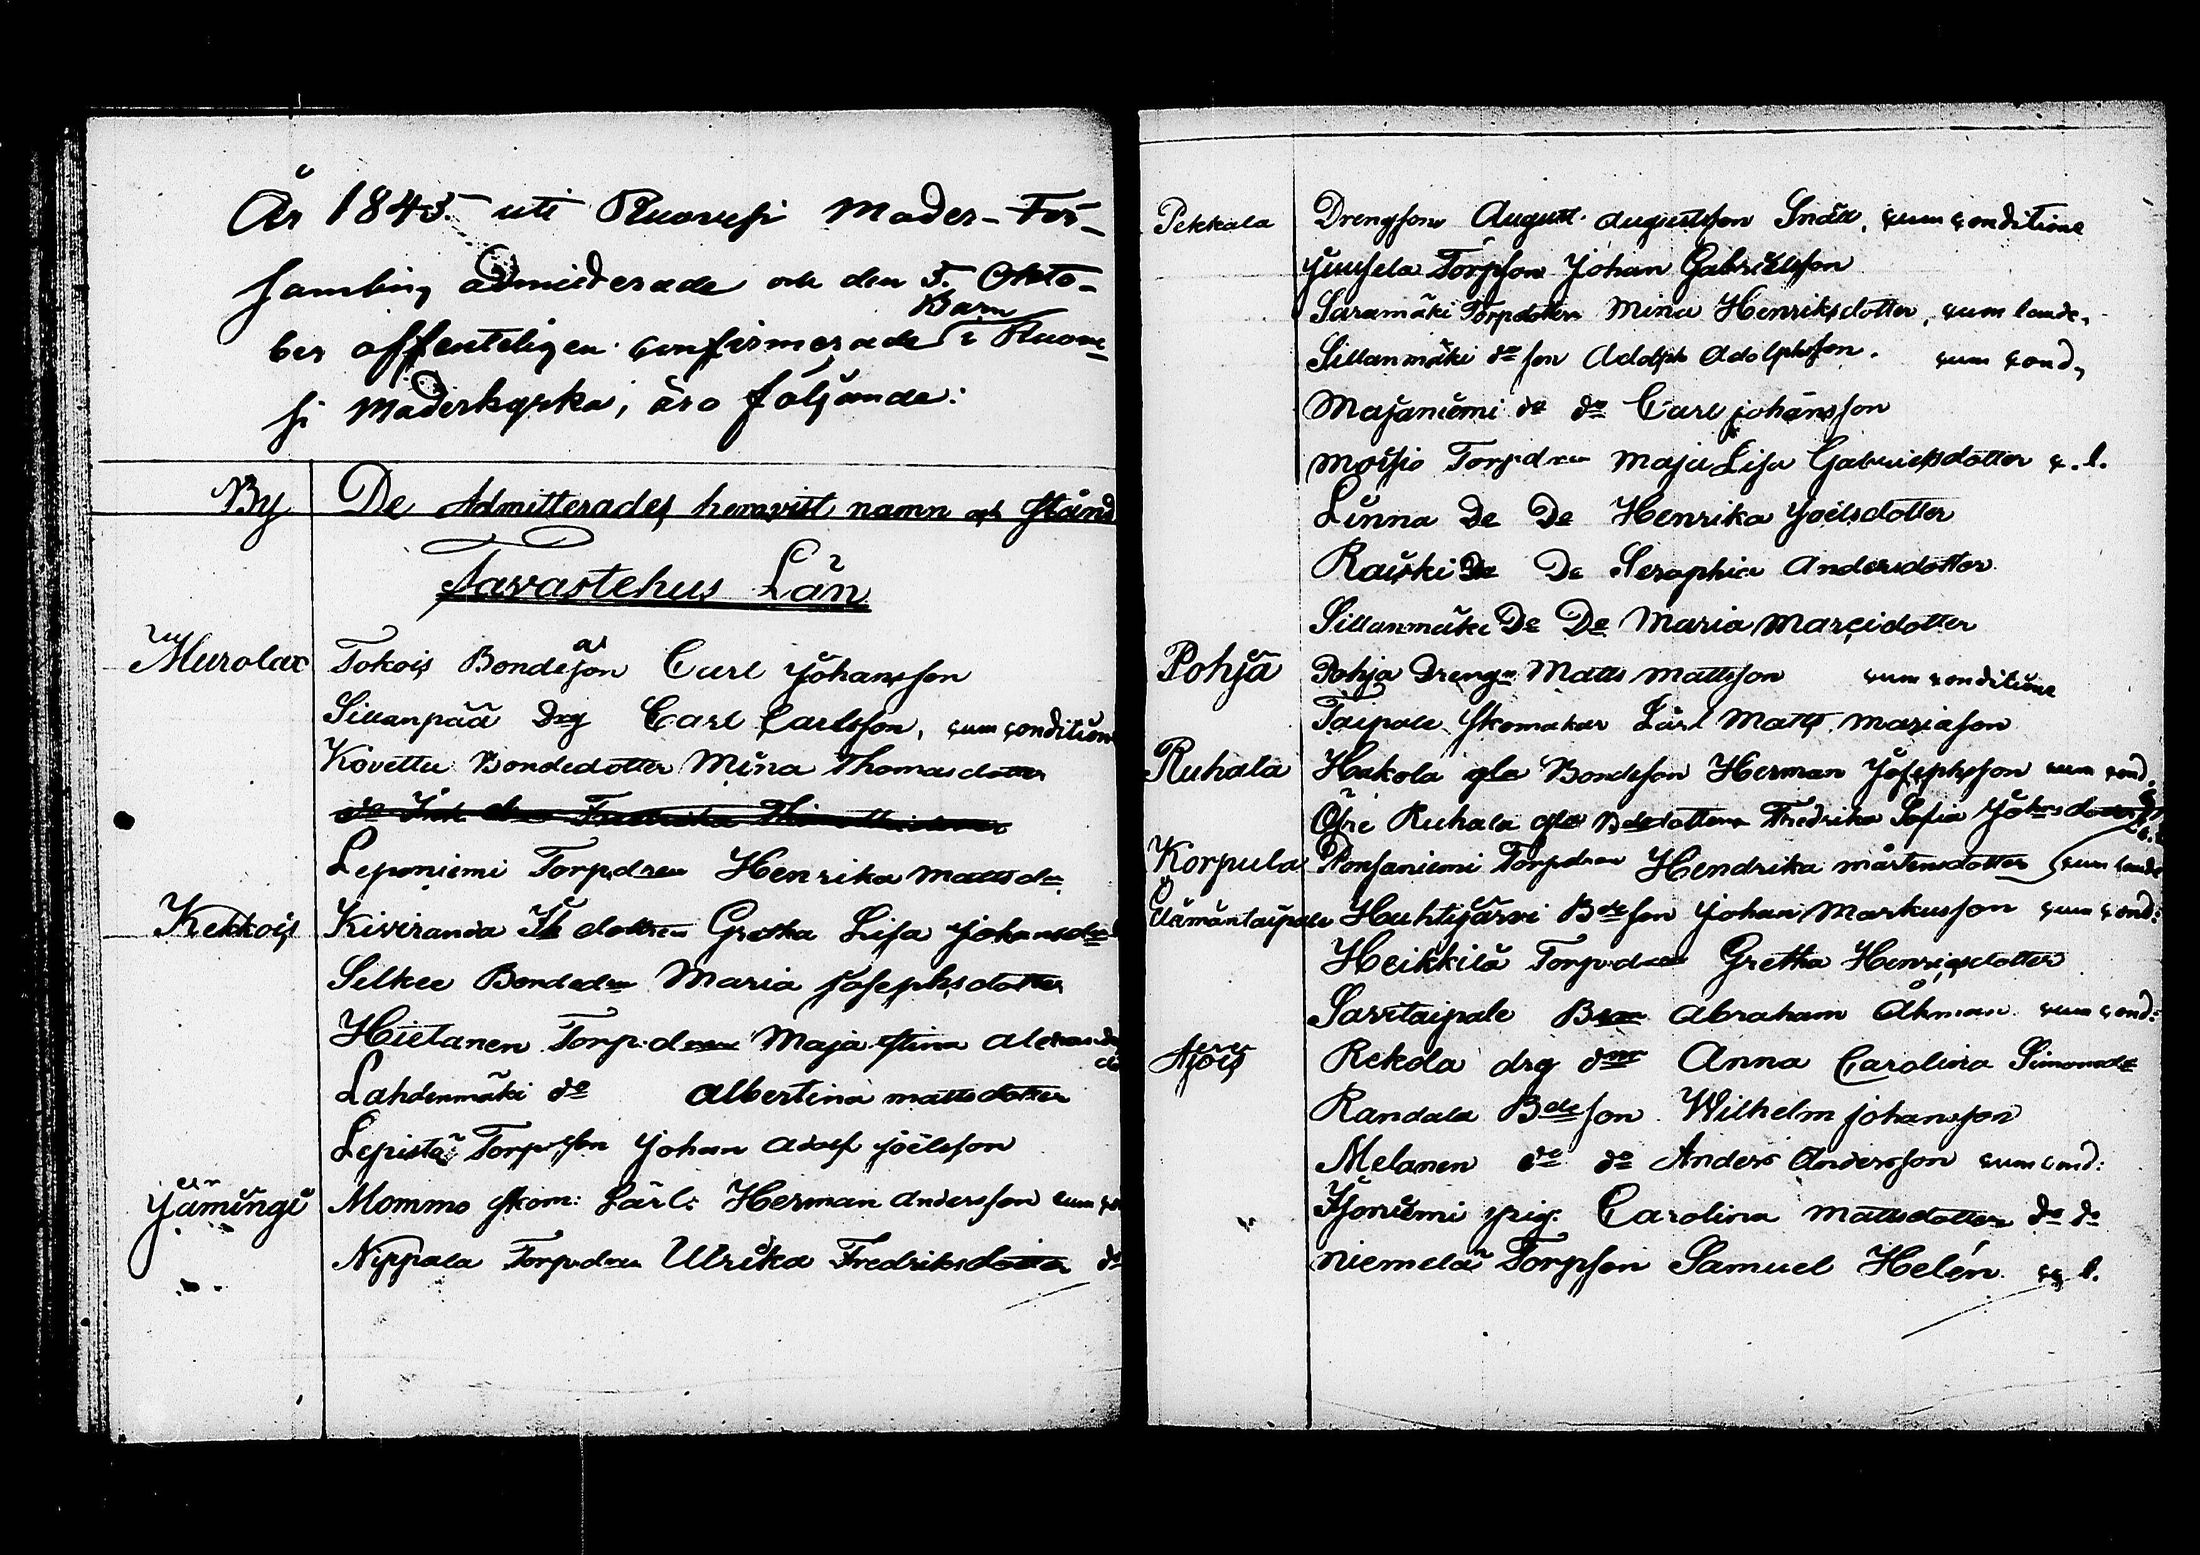 År 1843. uti Ruovesi Moder-För-
samling admitterade och den 5. Okto-
Barn
ber offenteligen confirmerade i Ruove-
si Moderkyrka, äro följande:
By De Admitterades hemvist namn och stånd
Tavastehus Län
Murolax Tokois Bondeson Carl Johansson
Sillanpää Drg Carl Carlsson, cum condition
Kovettu Bondedotter Mina Thomasdotter
Leponiemi Torpdren Henrika Mattsdr
Kekkois Kiviranda dottren Gretha Lisa Johansdr
Silkee Bondedrn Maria Josephsdotter
Hietanen Torpdren Maja Stina Alexand
Lahdenmäki do Albertina Mattsdotter
Lepistö Torpson Johan Adolf Joelsson
Jämingi Mommo skom: Lärl: Herman Andersson cum
Nippala Torpdren Ulrika Fredriksdotter do
Pekkala Drengson August Augustsson Snäll, cum conditione
Juusela Torpson Johan Gabrielsson
Saramäki Torpdottern Mina Henriksdotter, cum laude,
Sillanmäki do son Adolph Adolphsson. cum cond,
Majaniemi do do Carl Johansson
Moisio Torpdren Maja Lisa Gabrielsdotter c. l.
Linna De De Henrika Joelsdotter
Raiski De De Seraphia Andersdotter
Sillanmäki De De Maria Marcidotter
Pohja Pohja Dreng Matts Mattsson cum conditione
Taipale skomakar Lärl Matts Mariason
Ruhala Hakola gla Bondeson Herman Josephsson cum cond.
Öfre Ruhala gla Bdedottern Fredrika Sofia Johsdotter
Korpula Ponsaniemi Torpdren Hendrika Mårtensdotter cum laude
Elämäntaipale Huhtijärvi Bdeson Johan Markusson cum cond:
Heikkilä Torpdren Gretha Henricsdotter
Savitaipale Abraham Åhman cum cond:
Rekola drg dren Anna Carolina Simonsdr
Randala Bdeson Wilhelm Johansson
Melanen do do Anders Andersson cum cond:
pig. Carolina Mattsdotter do do
Niemelä Torpson Samuel Helén c. l.